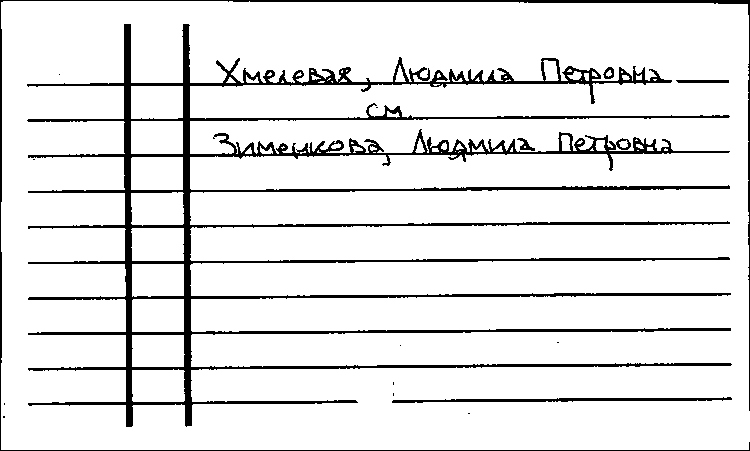 Хмелевая, Людмила Петровна
см.
Зименкова, Людмила Петровна